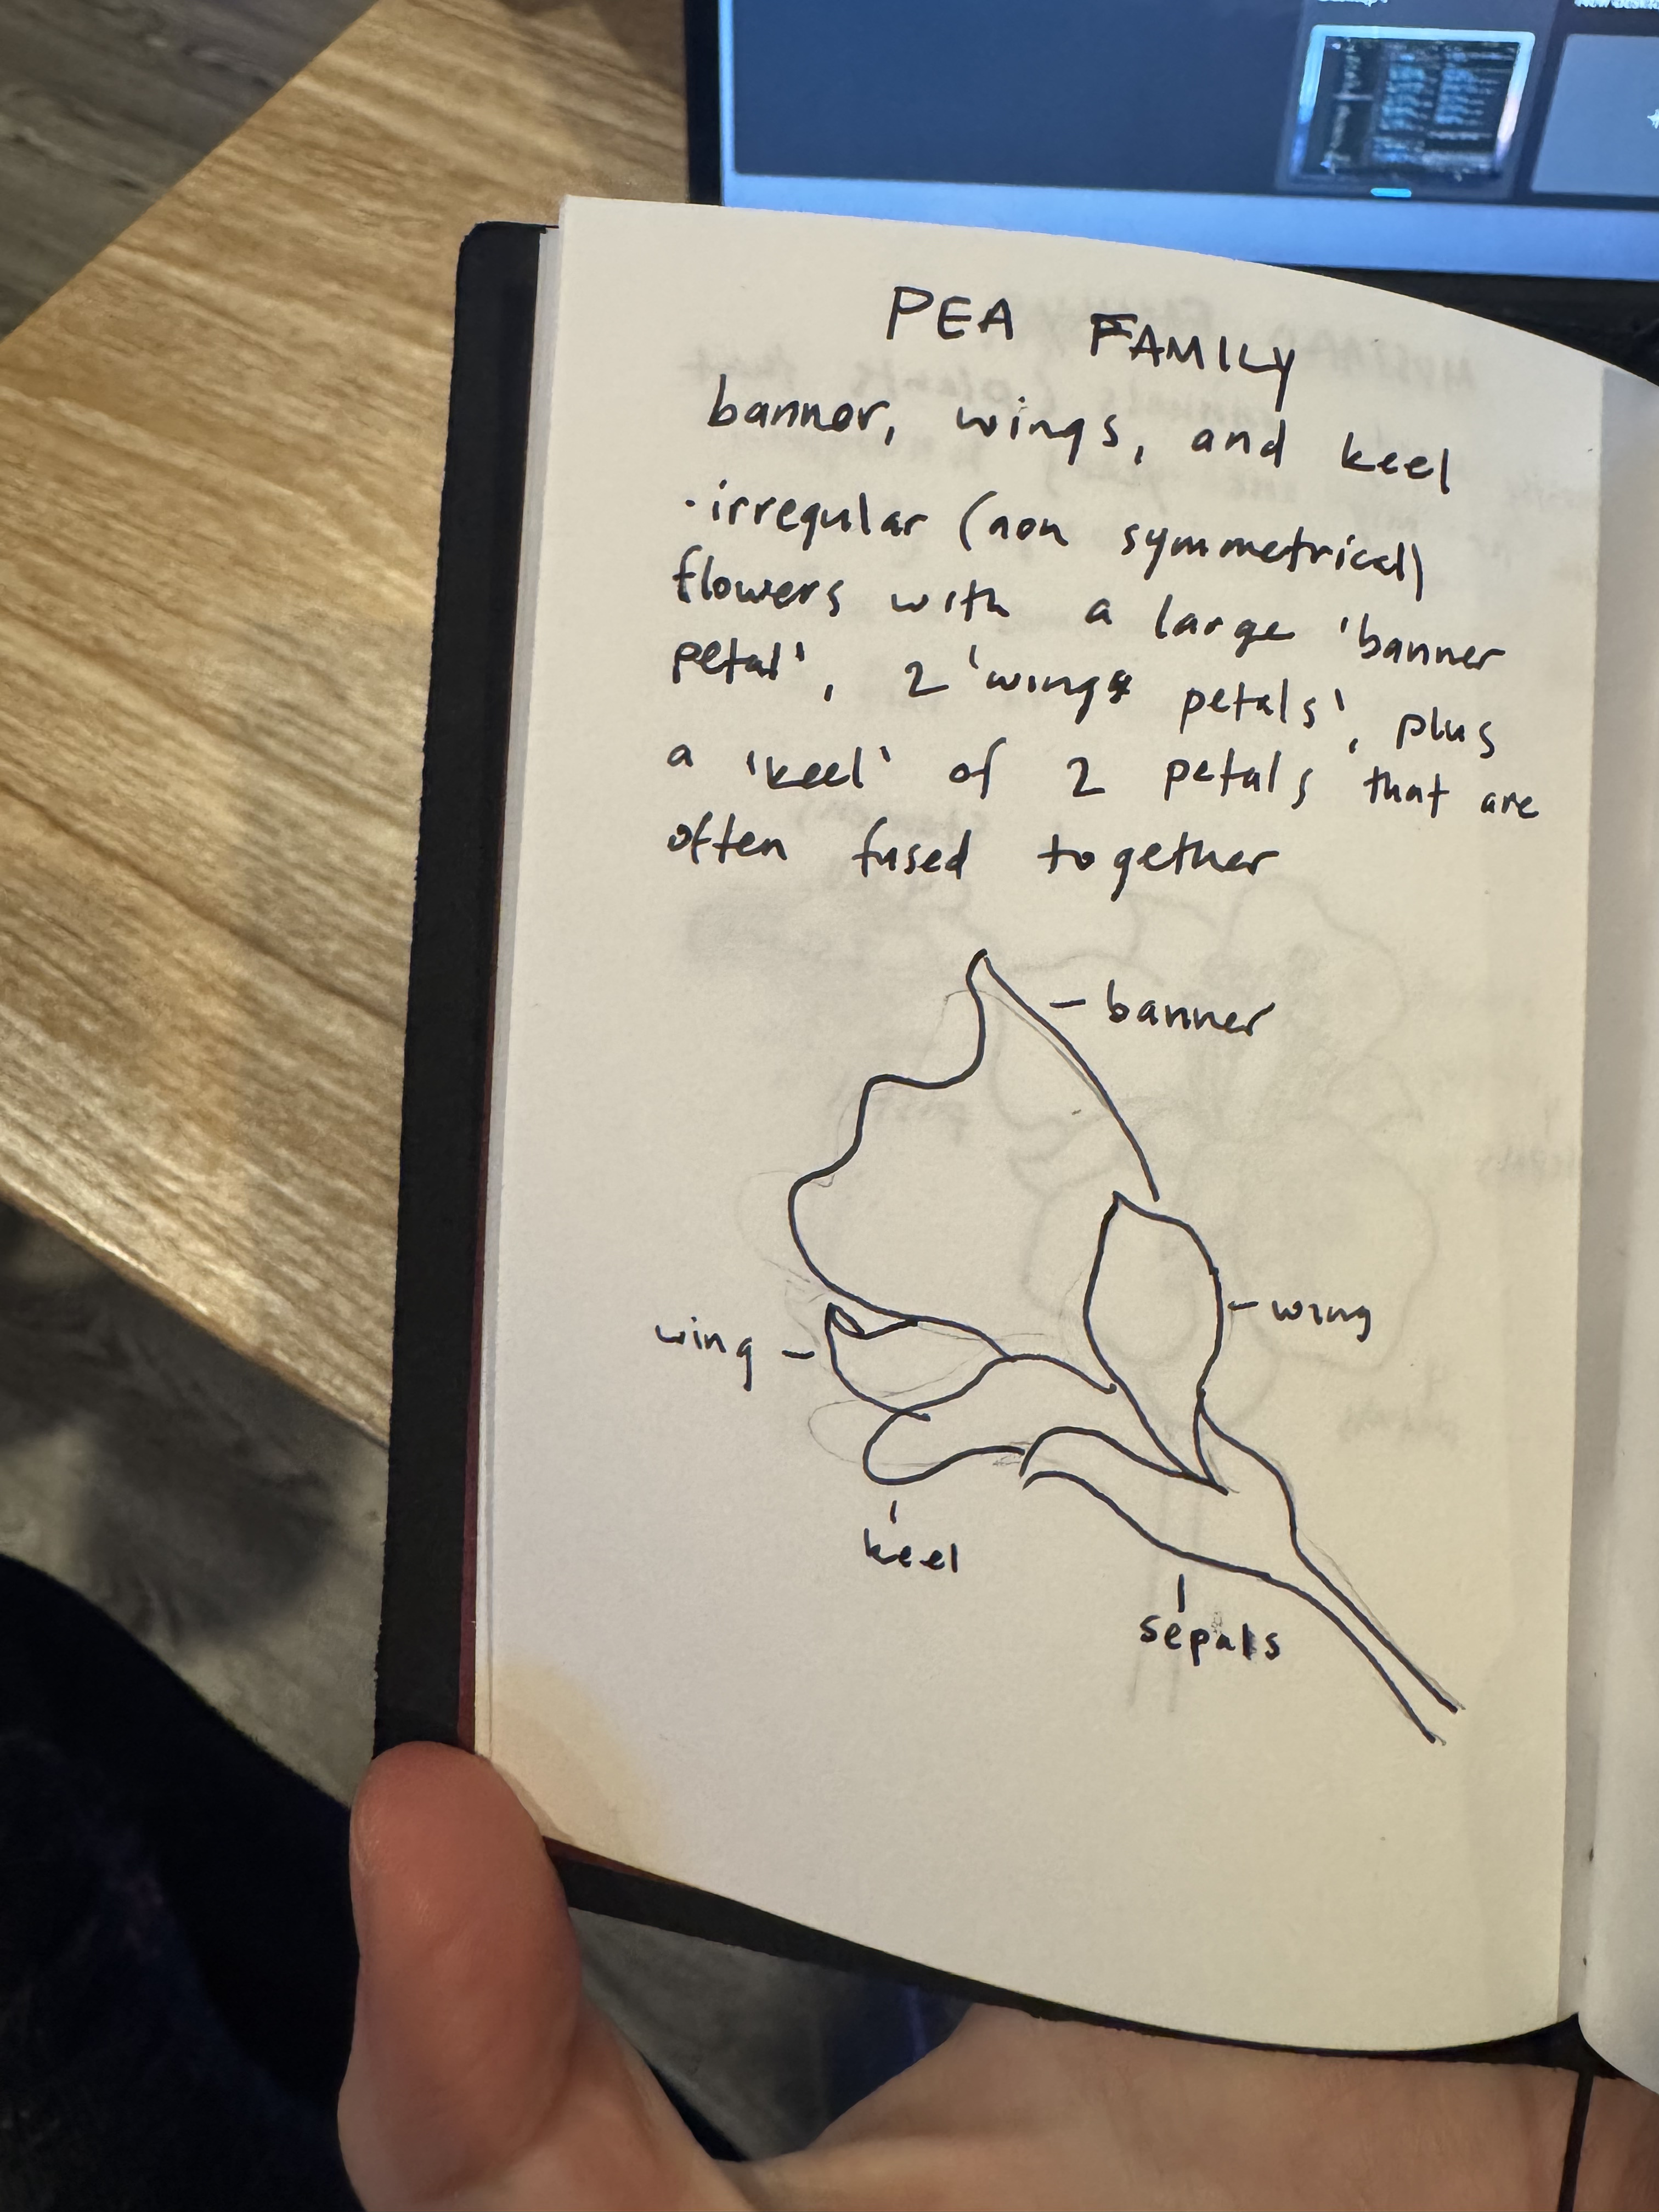 PEA FAMILY
banner, wings, and keel
· irregular (non symmetrical)
flowers with a large 'banner
petal', 2 'wings petals', plus
a 'keel' of 2 petals that are
often fused together
– banner
wing –
– wing
keel
sepals